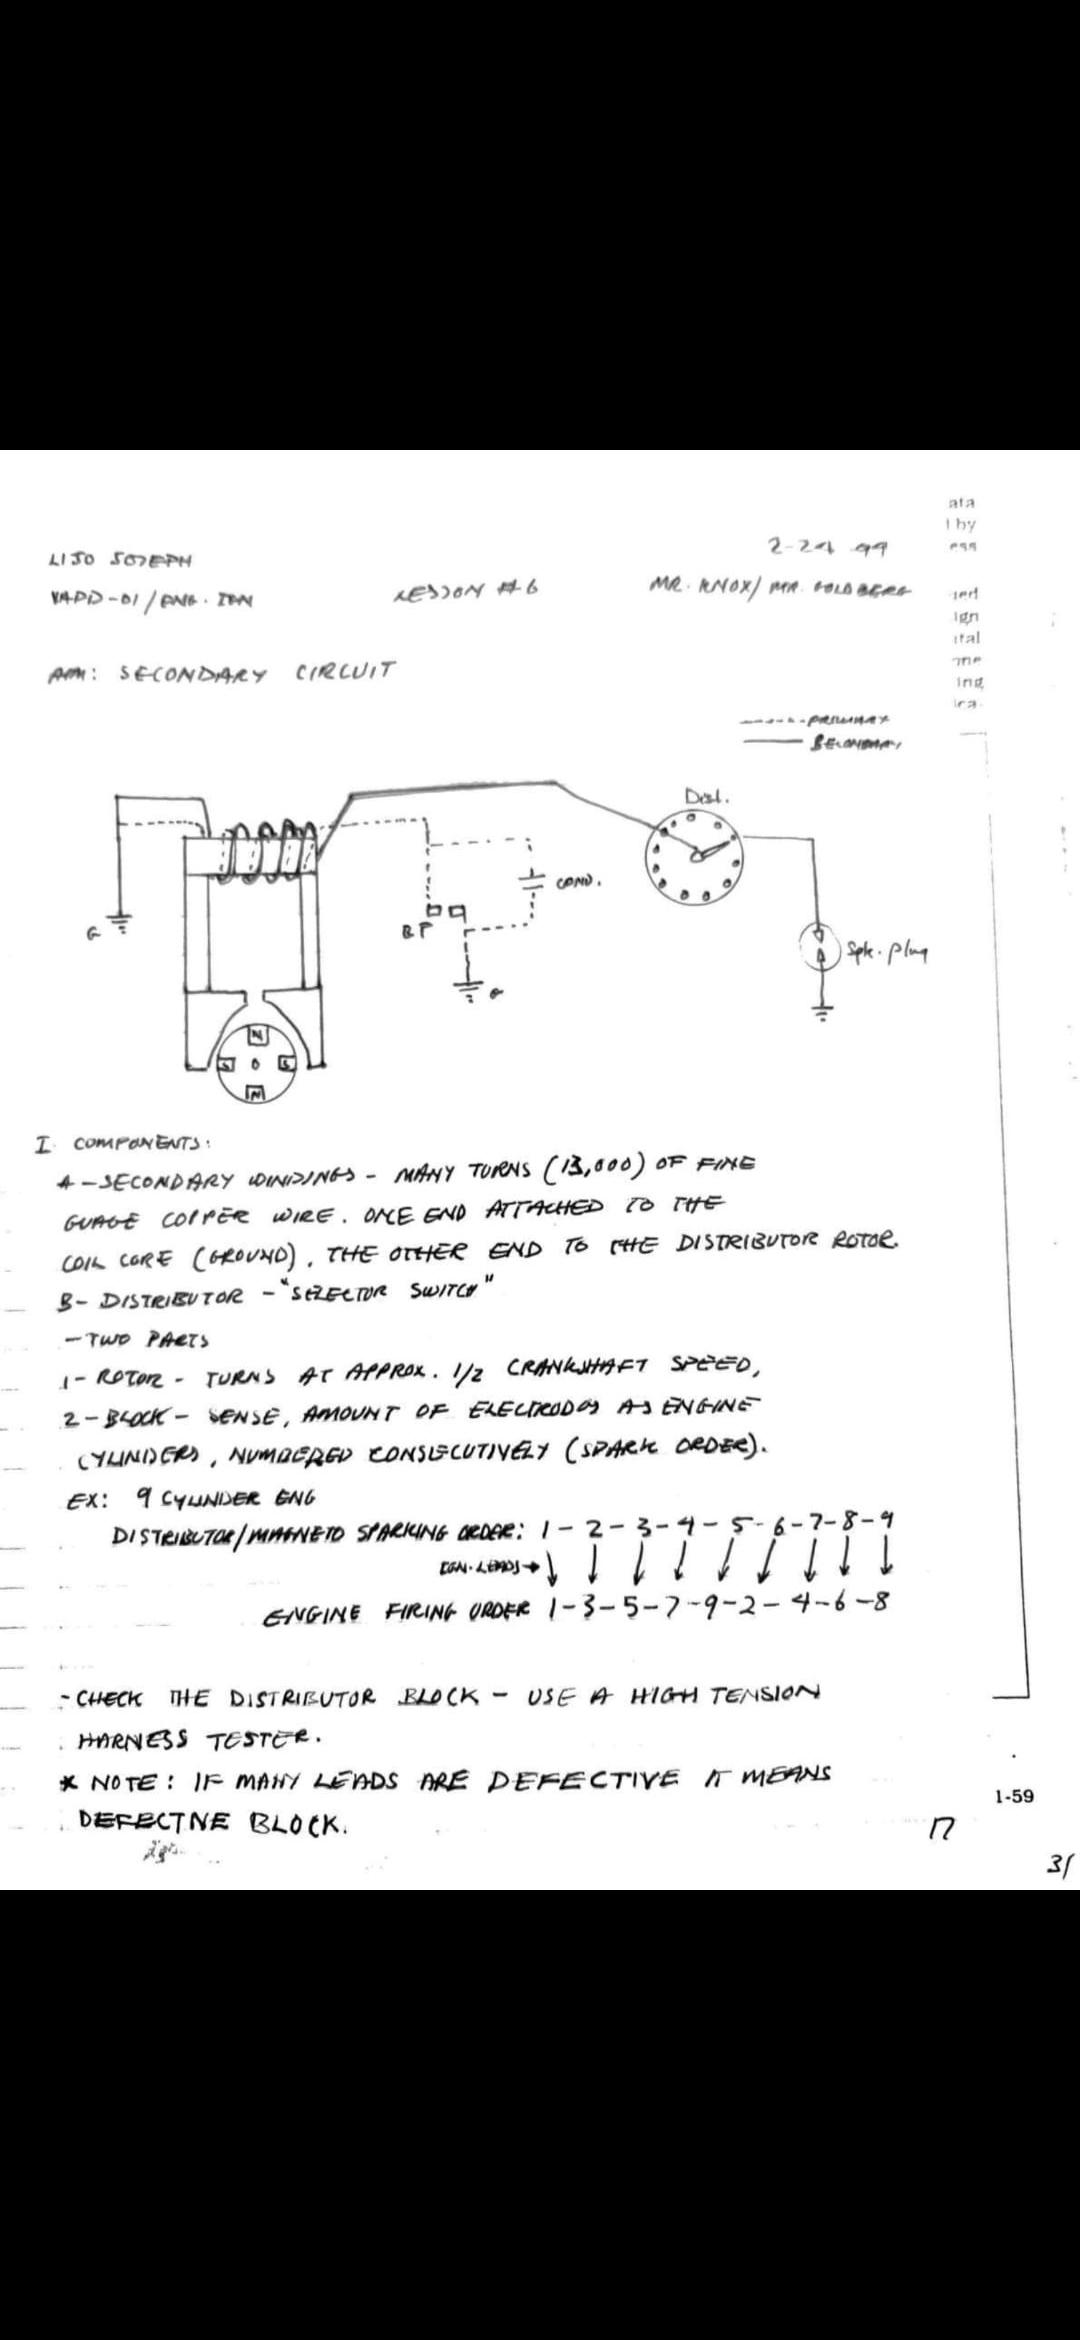 ata
l by
ess
ned
ign
ital
me
ing
ica.
LIJO JOSEPH
2-24-99
VAPD-01/ENG. IGN
LESSON #6
MR. KNOX/ MR. GOLDBERG
AIM: SECONDARY CIRCUIT
PRIMARY
SECONDARY
Dist.
COND.
BP
G
G
Spk. plug
N
S
S
N
I. COMPONENTS:
A - SECONDARY WINDINGS - MANY TURNS (13,000) OF FINE
GUAGE COPPER WIRE. ONE END ATTACHED TO THE
COIL CORE (GROUND), THE OTHER END TO THE DISTRIBUTOR ROTOR.
B- DISTRIBUTOR - "SELECTOR SWITCH"
- TWO PARTS
1- ROTOR - TURNS AT APPROX. 1/2 CRANKSHAFT SPEED,
2 - BLOCK - SENSE, AMOUNT OF ELECTRODES AS ENGINE
CYLINDERS, NUMBERED CONSECUTIVELY (SPARK ORDER).
EX: 9 CYLINDER ENG
DISTRIBUTOR/MAGNETO SPARKING ORDER: 1 - 2 - 3 - 4 - 5 - 6 - 7 - 8 - 9
IGN. LEADS →
ENGINE FIRING ORDER 1 - 3 - 5 - 7 - 9 - 2 - 4 - 6 - 8
- CHECK THE DISTRIBUTOR BLOCK - USE A HIGH TENSION
HARNESS TESTER.
* NOTE: IF MANY LEADS ARE DEFECTIVE IT MEANS
DEFECTIVE BLOCK.
1-59
17
31